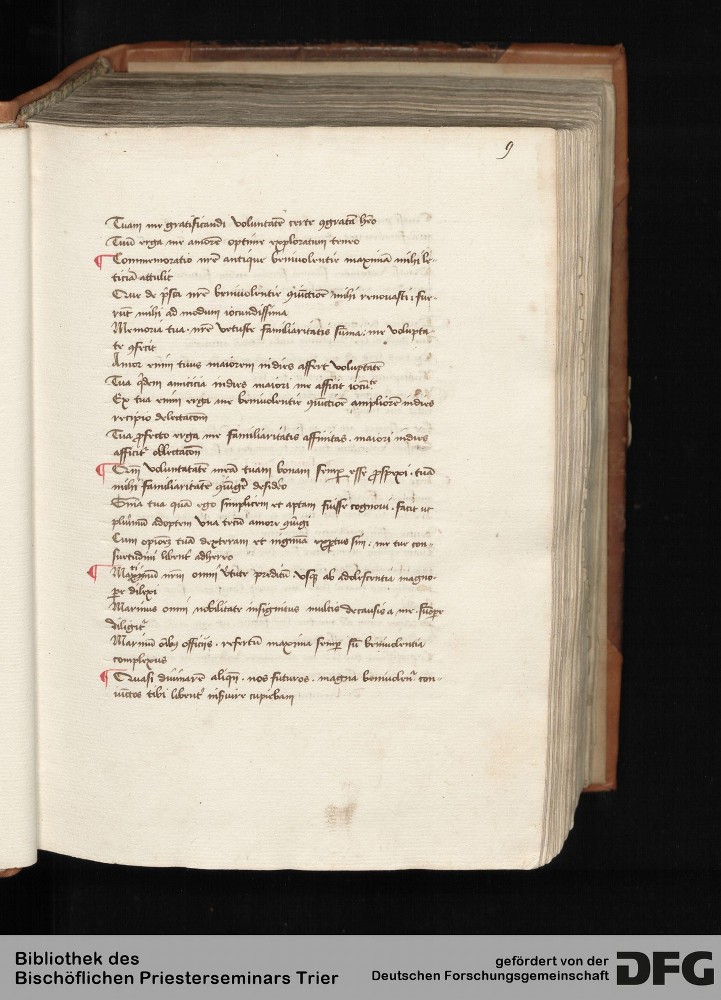 9
Tuam me gratificandi voluntatē certe ꝯgratā hēo
Tuū erga me amorē optime exploratum teneo
Commemoratio nr̄e antique beniuolentie maximā mihi le-
ticiā attulit
Que de pͥsca nr̄e beniuolentie ꝯiūctiōe mihi renouasti · fue-
rūt mihi ad modum iocundissima
Memoria tua · nr̄e vetuste familiaritatis sūma · me volupta-
te ꝯfecit
Amor enim tuus maiorem indies affert voluptatē
Tua qͥdem amicicia indies maiori me afficit
Ex tua enim erga me beniuolentie ꝯiūctiōe ampliorē indies
recipio delectacōem
Tua ꝓfecto erga me familiaritatis affinitas · maiori indies
afficit oblectacōe
Cum voluntatē meā tuam bonam semꝑ esse ꝓspexi · tuā
mihi familiaritatē ꝯiūgere desidero
tua quā ego simplicem et aptam fuisse cognoui · facit ut
plurimū adoptem vna tecū amore ꝯiūgi
Cum tuā dexteram et ingenuā exꝑtus sim · me tue con-
suetudini libenter adhereo
Maximū nr̄m omni v̄tute preditū · vsqꝫ ab adolescentia magno-
ꝑe dilexi
Marinus omni nobilitate insignitus multis de causis a me · sūōpe
diligitur
Marinū oībus officijs · refertū maxima semꝑ sū beniuolentia
complexus
Quasi diuinarē aliqn̄ · nos futuros · magna beniuolen. con-
iūctos tibi libenter inseruire cupiebam
Bibliothek des
Bischöflichen Priesterseminars Trier
gefördert von der
Deutschen Forschungsgemeinschaft
DFG